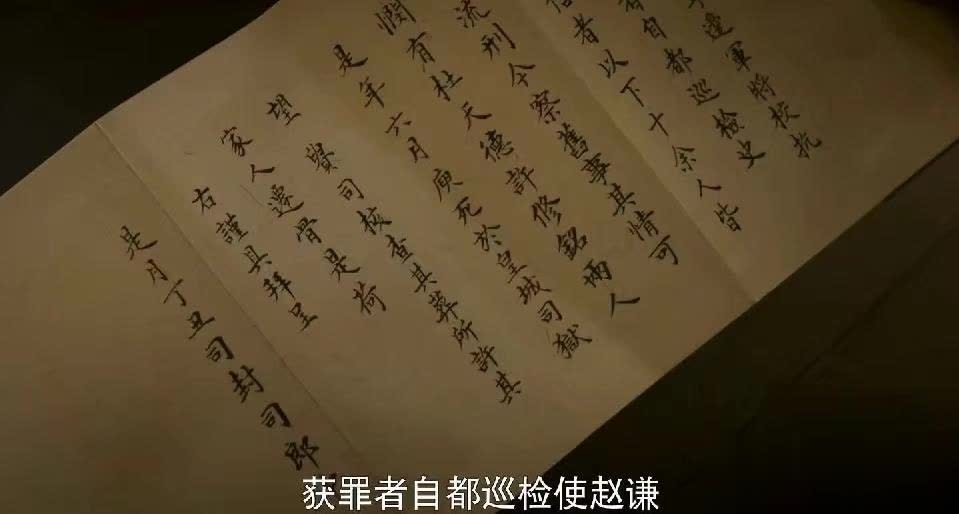 邊軍將校抗
自都巡檢史
者以下十余人皆
流刑今察舊事其情可
憫有杜天德許修銘兩人
是年六月庾死於皇城司獄
望 貴司核查其葬所許其
家人遷骨是荷
右謹具拜呈
是月丁丑司封司郎
获罪者自都巡检使赵谦